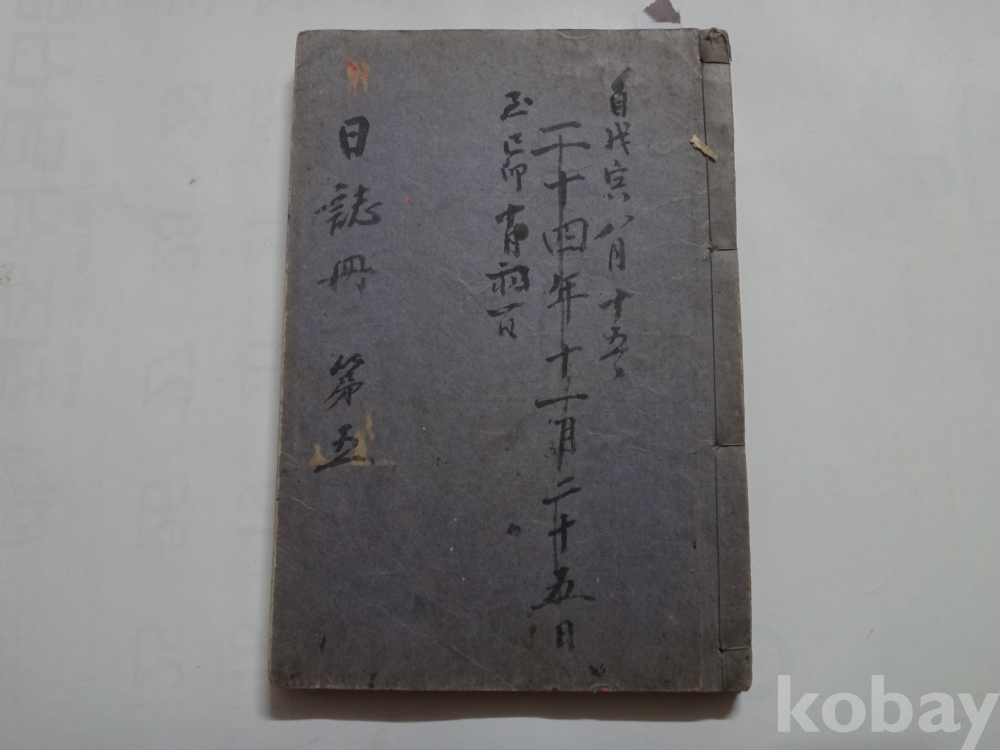 自戊寅八月十五日
二十四年十二月二十五日
至己卯十月初一日
日誌冊 第五
kobay